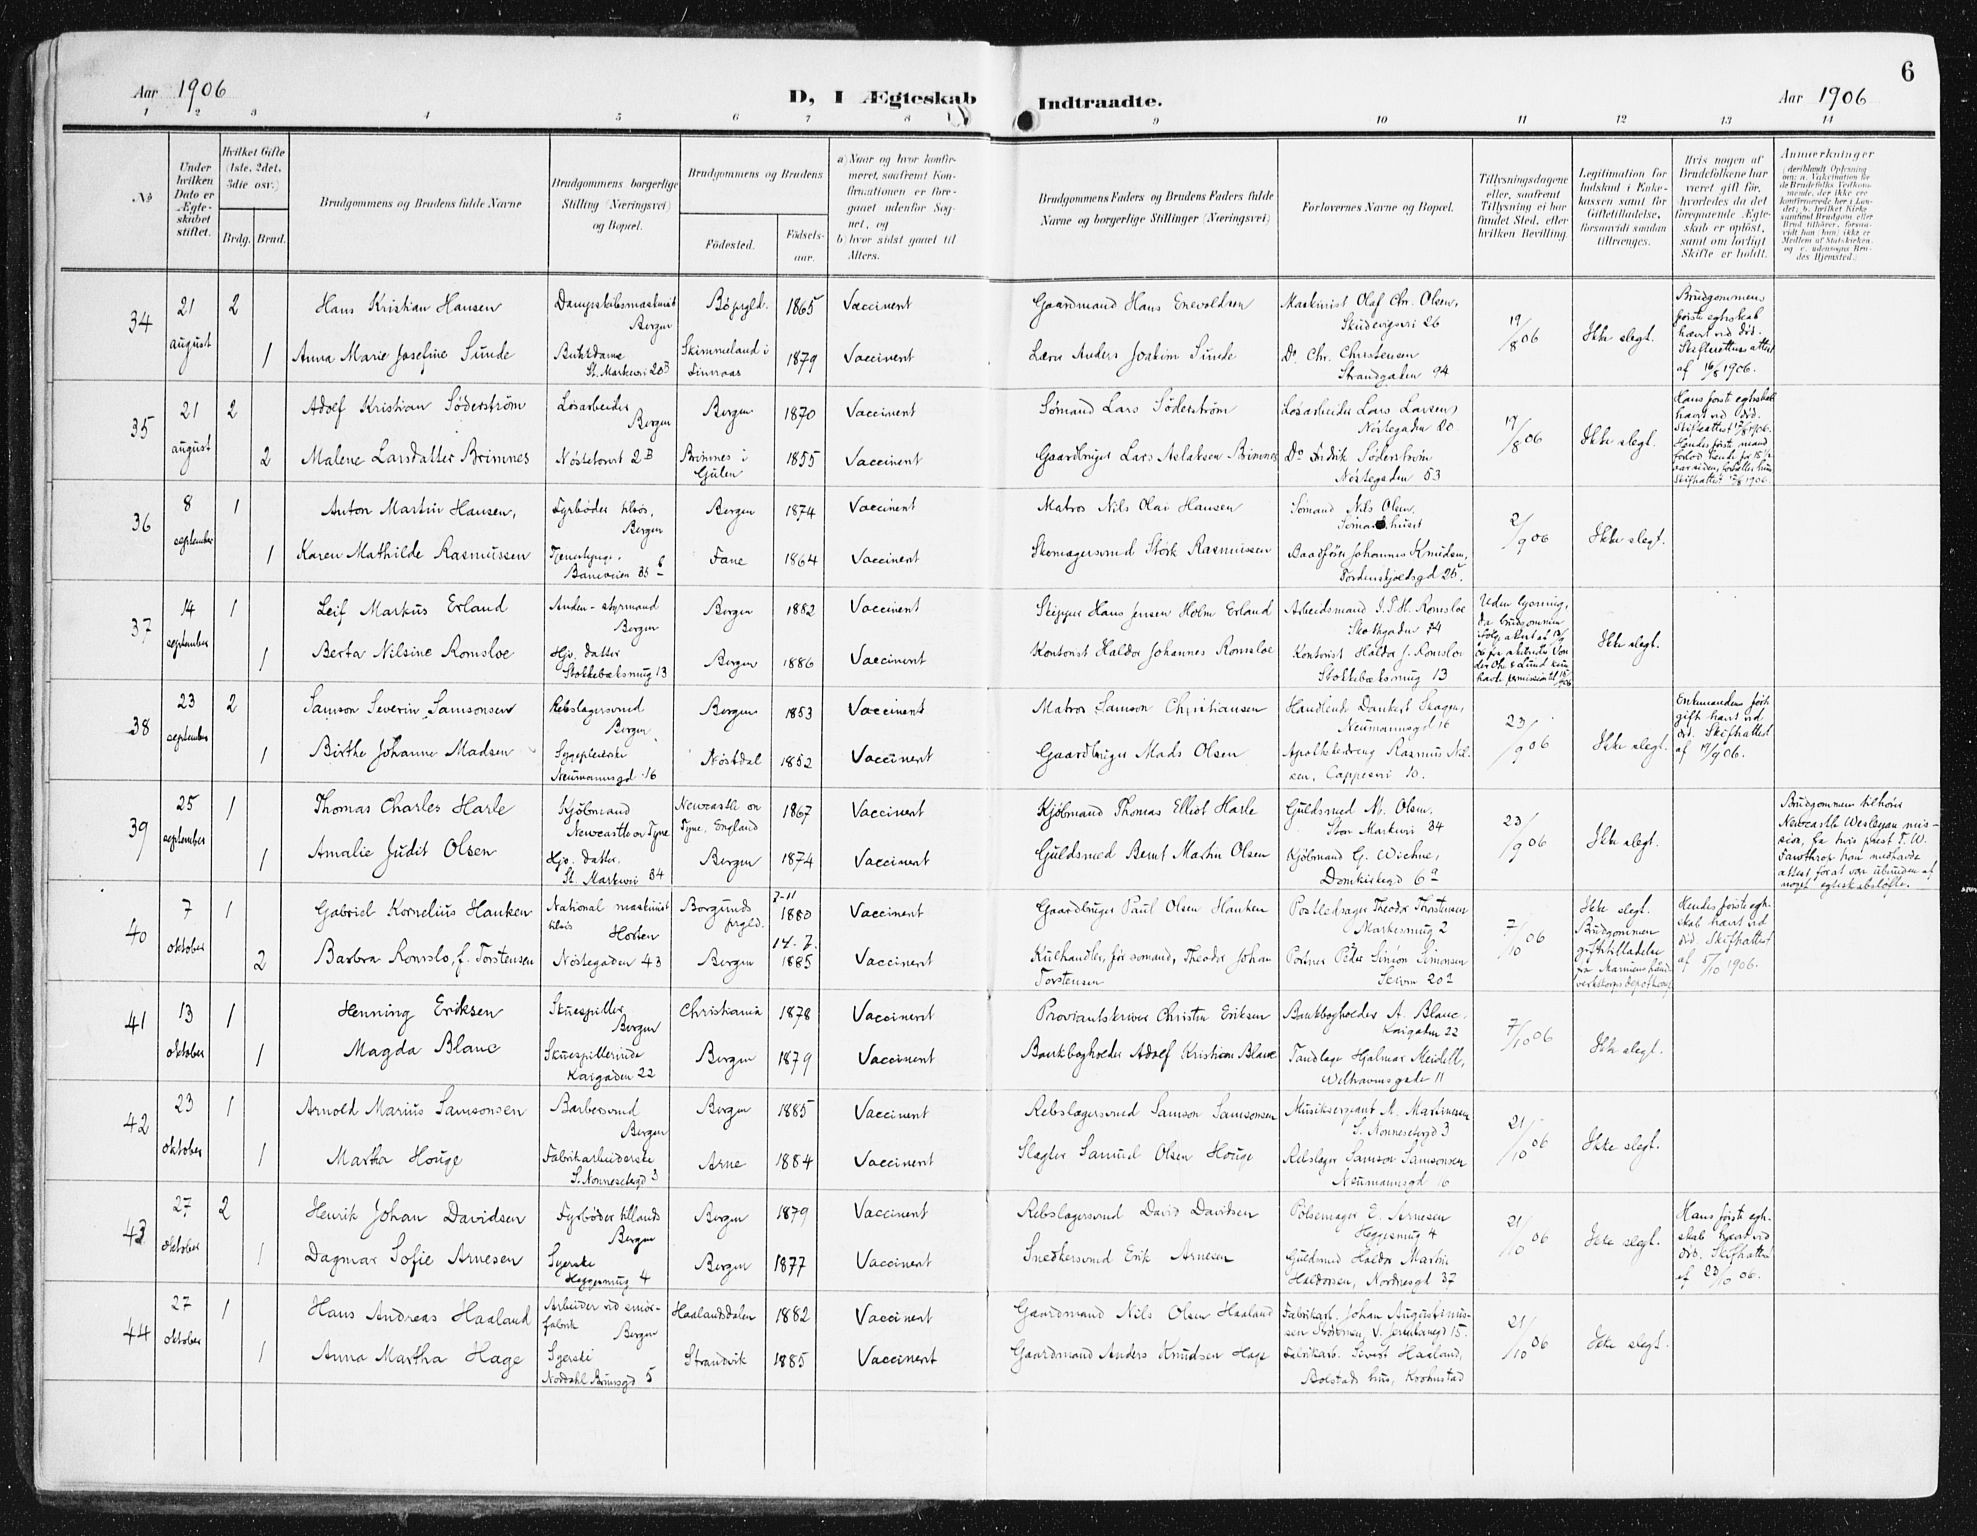 Aar 1906
D, I Ægteskab Indtraadte.
Aar 1906
6
1 2 3 4 5 6 7 8 9 10 11 12 13 14
No
Under hvilken Dato er Ægteskabet stiftet.
Hvilket Gifte (1ste, 2det, 3die osv.)
Brdg. Brud.
Brudgommens og Brudens fulde Navne
Brudgommens borgerlige Stilling (Næringsvei) og Bopæl.
Brudgommens og Brudens
Fødested.
Fødselsaar.
a) Naar og hvor konfirmeret, saafremt Konfirmationen er foregaaet udenfor Sognet, og
b) hvor sidst gaaet til Alters.
Brudgommens Faders og Brudens Faders fulde Navne og borgerlige Stillinger (Næringsvei)
Forlovernes Navne og Bopæl.
Tillysningsdagene eller, saafremt Tillysning ei har fundet Sted, efter hvilken Bevilling
Legitimation for Indskud i Enkekassen samt for Giftetilladelse, forsaavidt saadan tiltrænges.
Hvis nogen af Brudefolkene har været gift før, hvorledes da det foregaaende Ægteskab er opløst, samt om lovligt Skifte er holdt.
Anmerkninger
34
21 august
2
Hans Kristian Hansen
Dampskibsmaskinist Bergen
Bø prgld.
1865
Vaccinert
Gaardmand Hans Enevoldsen
Maskinist Olaf Chr. Olsen, Skudevigsvei 26
19/8 06
Ikke slegt.
Brudgommens første egteskab hævt ved død. Skifterettens attest af 16/8 1906.
1
Anna Marie Josefine Sunde
St. Markevei 20B
Skimmeland i Finnaas
1879
Vaccinert
Anders Joakim Sunde
Do. Chr. Christensen Strandgaden 94
35
21 august
2
Adolf Kristian Söderström
Løsarbeider Bergen
Bergen
1870
Vaccinert
Sømand Lars Söderström
Løsarbeider Lars Larsen, Nøstegaden 20
17/8 06
Ikke slegt.
Hans første egteskab hævt ved død.
2
Malene Larsdatter Brimnes
Nøstetorvet 2B
Brimnes i Gulen
1855
Vaccinert
Gaardbruger Lars Aslaksen Brimnes
Do Fredrik Söderström Nøstegaden 53
36
8 september
1
Anton Martin Hansen,
Fyrbøder tilsøs, Bergen
Bergen
1874
Vaccinert
Matros Nils Olai Hansen
Sømand Nils Olsen, Sømandshuset
2/9 06
Ikke slegt.
1
Karen Mathilde Rasmussen
Tjenestepige, Baneveien 35
Fane
1864
Vaccinert
Skomagersvend Størk Rasmussen
Baadfører Johannes Knudsen, Tordenskjoldsgd 25.
37
14 september
1
Leif Markus Erland
Anden-styrmand Bergen
Bergen
1882
Vaccinert
Skipper Hans Jensen Holm Erland
Arbeidsmand J. P. H. Romsloe Skottegaden 74
Uden lysning, da brudgommen
Ikke slegt.
1
Berta Nilsine Romsloe
Hjv. datter Stokkebæksmug 13
Bergen
1886
Vaccinert
Kontorist Haldor Johannes Romsloe
Kontorist Haldor J. Romsloe Stokkebæksmug 13
38
23 september
2
Samson Severin Samsonsen
Rebslagersvend Bergen
Bergen
1853
Vaccinert
Matros Samson Christiansen
Neumannsgd 16
23/9 06
Ikke slegt.
Enkemandens første gift hævt ved død. Skifteattest af 17/9 06.
1
Birthe Johanne Madsen
Sygepleierske Neumannsgd 16
Nøstdal
1852
Vaccinert
Gaardbruger Mads Olsen
Apothekdreng Rasmus Nilsen, Cappesvei 10.
39
25 september
1
Thomas Charles Harle
Kjøbmand Newcastle on Tyne
Newcastle on Tyne, England
1867
Vaccinert
Kjøbmand Thomas Elliot Harle
Guldsmed M. Olsen, Store Markevei 34
23/9 06
Ikke slegt.
Brudgommen tilhører Newcastle Wesleyan mission, fra hvis prest T. W. Fawthrop han medhavde attest for at være ubunden af noget egteskabsløfte.
1
Amalie Judit Olsen
Hjv. datter, St. Markevei 34
Bergen
1874
Vaccinert
Guldsmed Bernt Martin Olsen
Kjøbmand G. Wichne, Domkirkegd 6a
40
7 oktober
1
Gabriel Kornelius Hanken
National maskinist tilsøs Horten
Borgunds prgld.
2-11 1880
Vaccinert
Gaardbruger Paul Olsen Hanken
Postledsager Theodor Torstensen Markesmug 2
7/10 06
Ikke slegt. Brudgommen giftetilladelse fra Marinens
Hendes første egteskab hævt ved død. Skifteattest af 5/10 1906.
2
Barbra Romslo, f. Torstensen
Nøstegaden 43
Bergen
14-7. 1885
Vaccinert
Kulhandler, før sømand, Theodor Johan Torstensen
Portner Peder Simon Simonsen Skiven 20a
41
13 oktober
1
Henning Eriksen
Skuespiller, Bergen
Christiania
1878
Vaccinert
Proviantskriver Christen Eriksen
Bankbogholder A. Blanc. Kaigaden 22
7/10 06
Ikke slegt.
1
Magda Blanc
Skuespillerinde Kaigaden 22
Bergen
1879
Vaccinert
Bankbogholder Adolf Kristian Blanc
Tandlæge Hjalmar Meidell, Welhavensgade 11
42
23 oktober
1
Arnold Marius Samsonsen
Barbersvend Bergen
Bergen
1885
Vaccinert
Rebslagersvend Samson Samsonsen
Musiksergeant A. Martinesen S. Nonnesetergd 3
21/10 06
Ikke slegt.
1
Martha Houge
Fabrikarbeiderske S. Nonnesetergd 3
Arne
1884
Vaccinert
Slagter Samuel Olsen Houge
Rebslager Samson Samsonsen Neumannsgd 16
43
27 oktober
2
Henrik Johan Davidsen
Fyrbøder tillands Bergen
Bergen
1879
Vaccinert
Rebslagersvend David Davidsen
Pølsemager E. Arnesen Heggesmug 4
21/10 06
Ikke slegt.
Hans første egteskab hævt ved død. Skifteattest af 23/10 06.
1
Dagmar Sofie Arnesen
Syerske Heggesmug 4
Bergen
1877
Vaccinert
Snedkersvend Erik Arnesen
Guldsmed Haldor Martin Haldorsen, Nordnesgd 37
44
27 oktober
1
Hans Andreas Haaland
Arbeider ved smørfabrik Bergen
Haalandsdalen
1882
Vaccinert
Gaardmand Nils Olsen Haaland
Fabrikarb. Johan Augustinussen
21/10 06
Ikke slegt.
1
Anna Martha Hage
Syerske Nordahl Brunsgd 5
Strandvik
1885
Vaccinert
Gaardmand Anders Knudsen Hage
Fabrikarb. Sivert Haaland, Bolstads hus, Kronstad